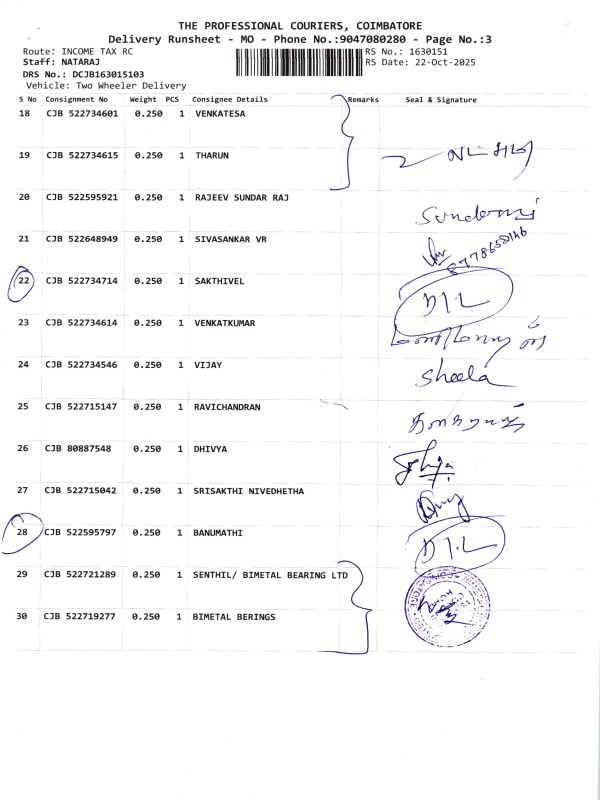 THE PROFESSIONAL COURIERS, COIMBATORE
Delivery Runsheet - MO - Phone No.:9047080280 - Page No.:3
Route: INCOME TAX RC RS No.: 1630151
Staff: NATARAJ RS Date: 22-Oct-2025
DRS No.: DCJB163015103
Vehicle: Two Wheeler Delivery
S No Consignment No Weight PCS Consignee Details Remarks Seal & Signature
18 CJB 522734601 0.250 1 VENKATESA
19 CJB 522734615 0.250 1 THARUN
20 CJB 522595921 0.250 1 RAJEEV SUNDAR RAJ
21 CJB 522648949 0.250 1 SIVASANKAR VR
22 CJB 522734714 0.250 1 SAKTHIVEL D/L
23 CJB 522734614 0.250 1 VENKATKUMAR
24 CJB 522734546 0.250 1 VIJAY Sheela
25 CJB 522715147 0.250 1 RAVICHANDRAN
26 CJB 80887548 0.250 1 DHIVYA
27 CJB 522715042 0.250 1 SRISAKTHI NIVEDHETHA
28 CJB 522595797 0.250 1 BANUMATHI D/L
29 CJB 522721289 0.250 1 SENTHIL/ BIMETAL BEARING LTD
30 CJB 522719277 0.250 1 BIMETAL BERINGS